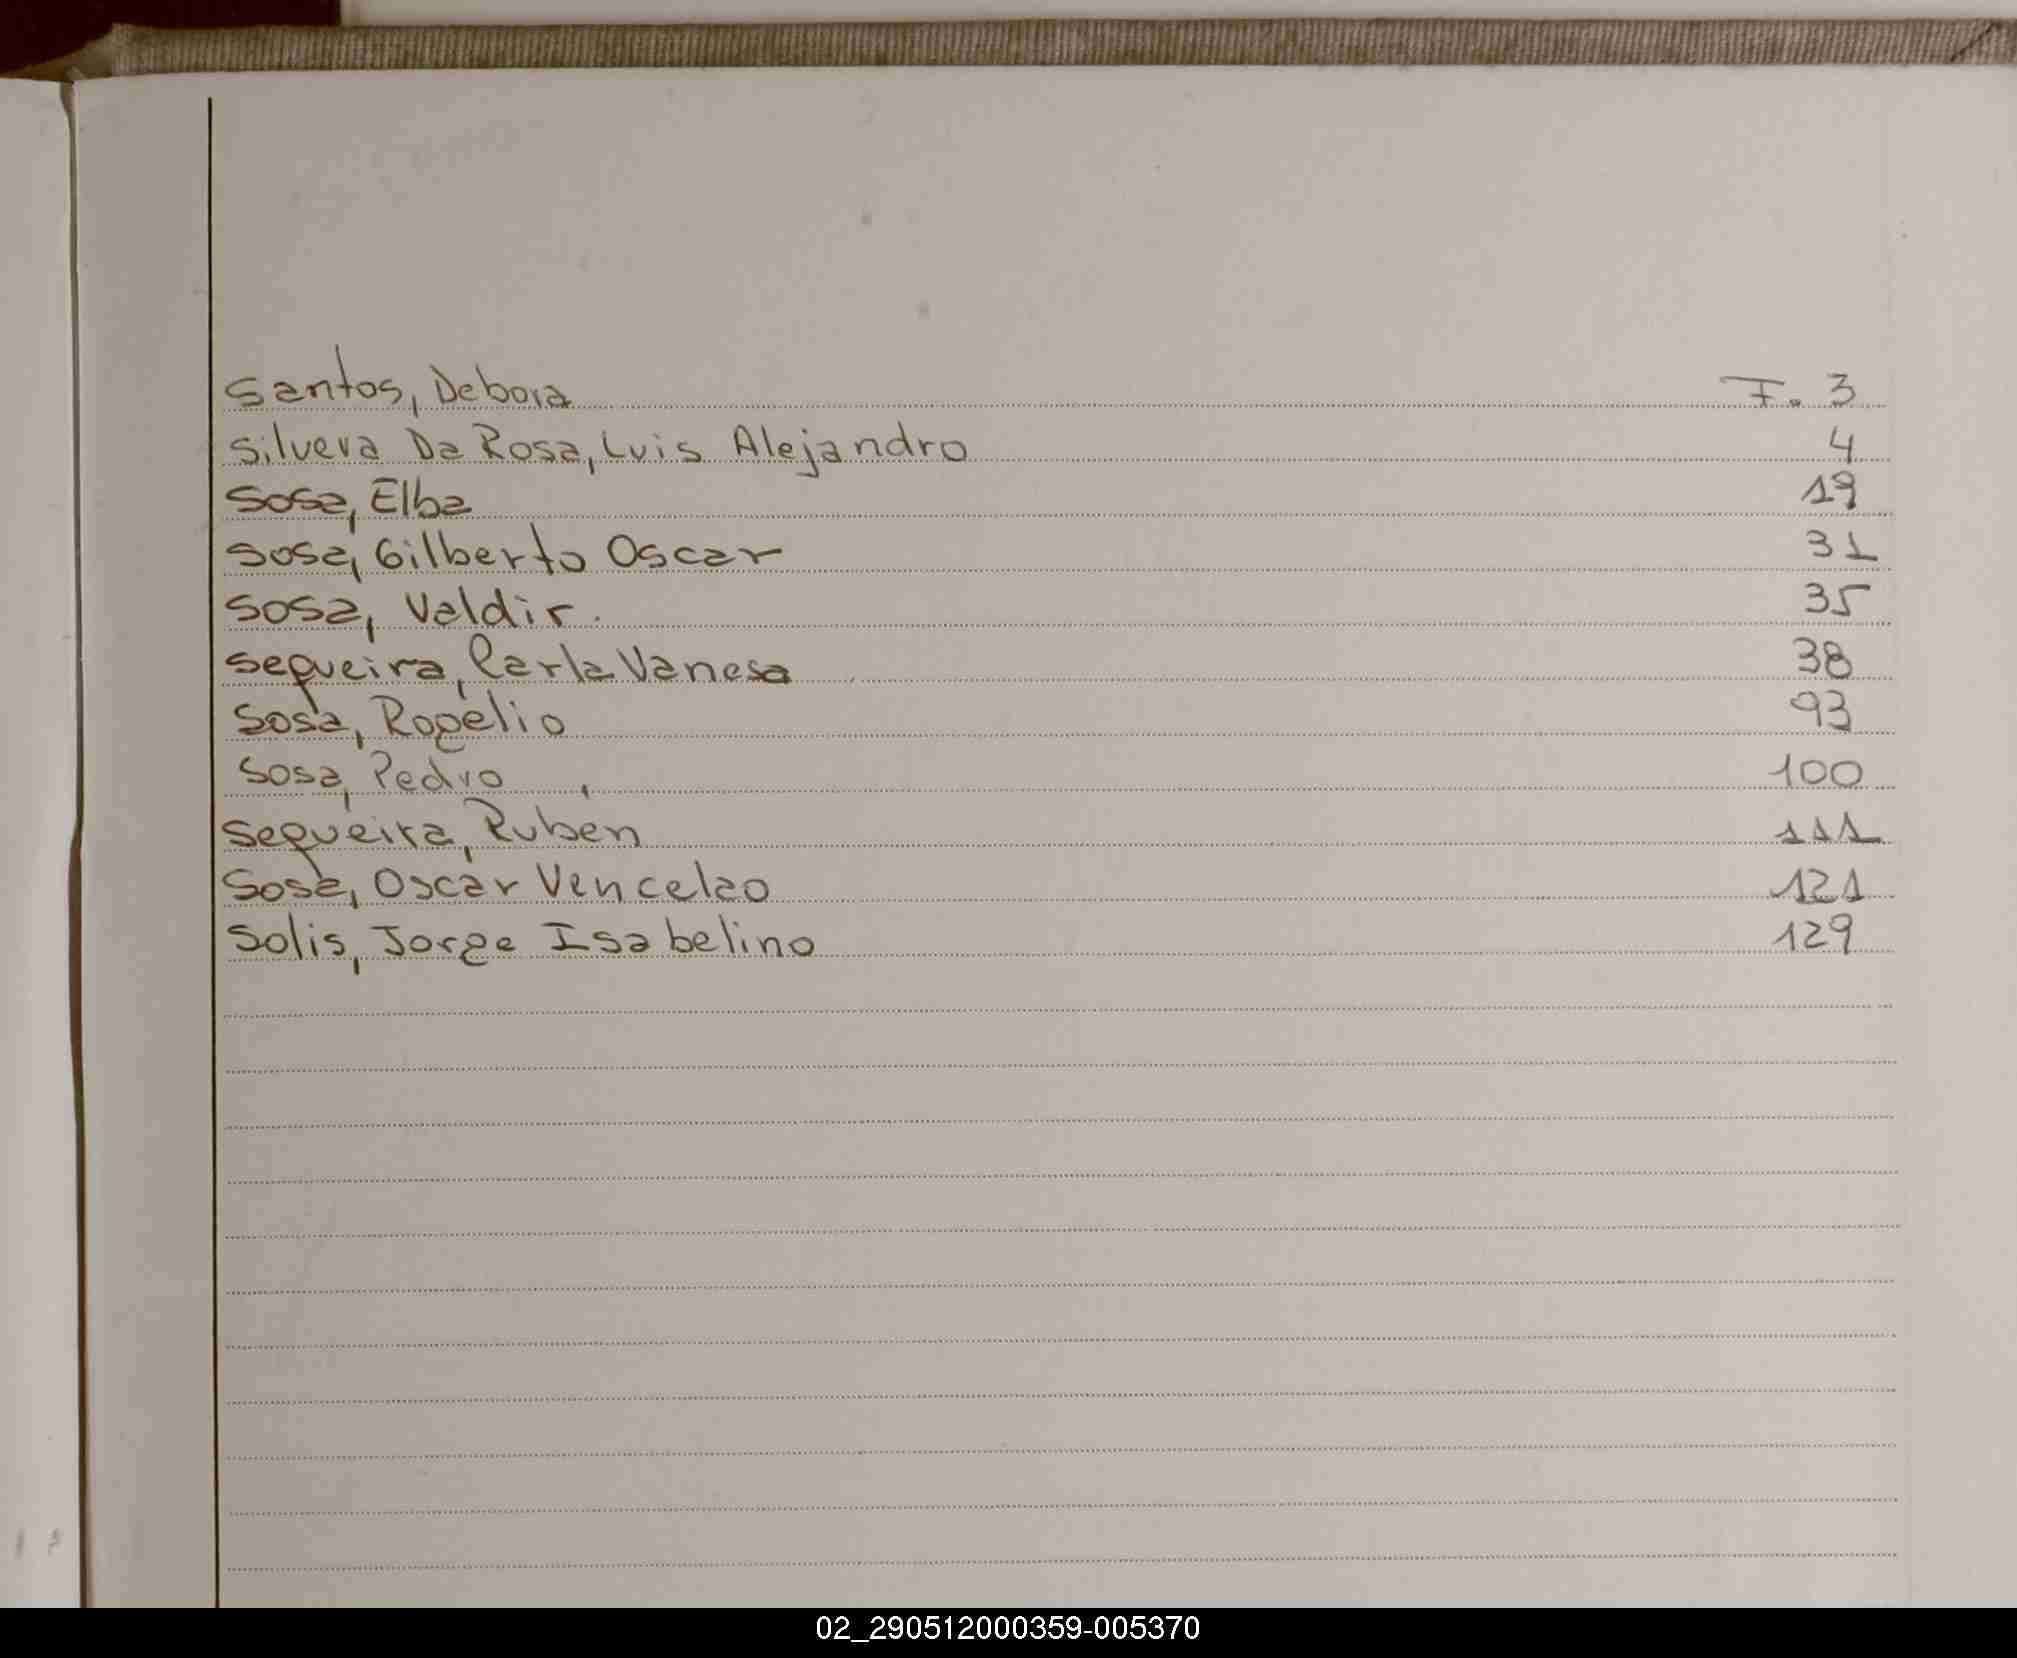 Santos, Debora F. 3
Silvera Da Rosa, Luis Alejandro 4
Sosa, Elba 19
Sosa, Gilberto Oscar 31
Sosa, Valdir. 35
Sequeira, Carla Vanesa 38
Sosa, Rogelio 93
Sosa, Pedro 100
Sequeira, Ruben 111
Sosa, Oscar Vencelao 121
Solis, Jorge Isabelino 129
02_290512000359-005370